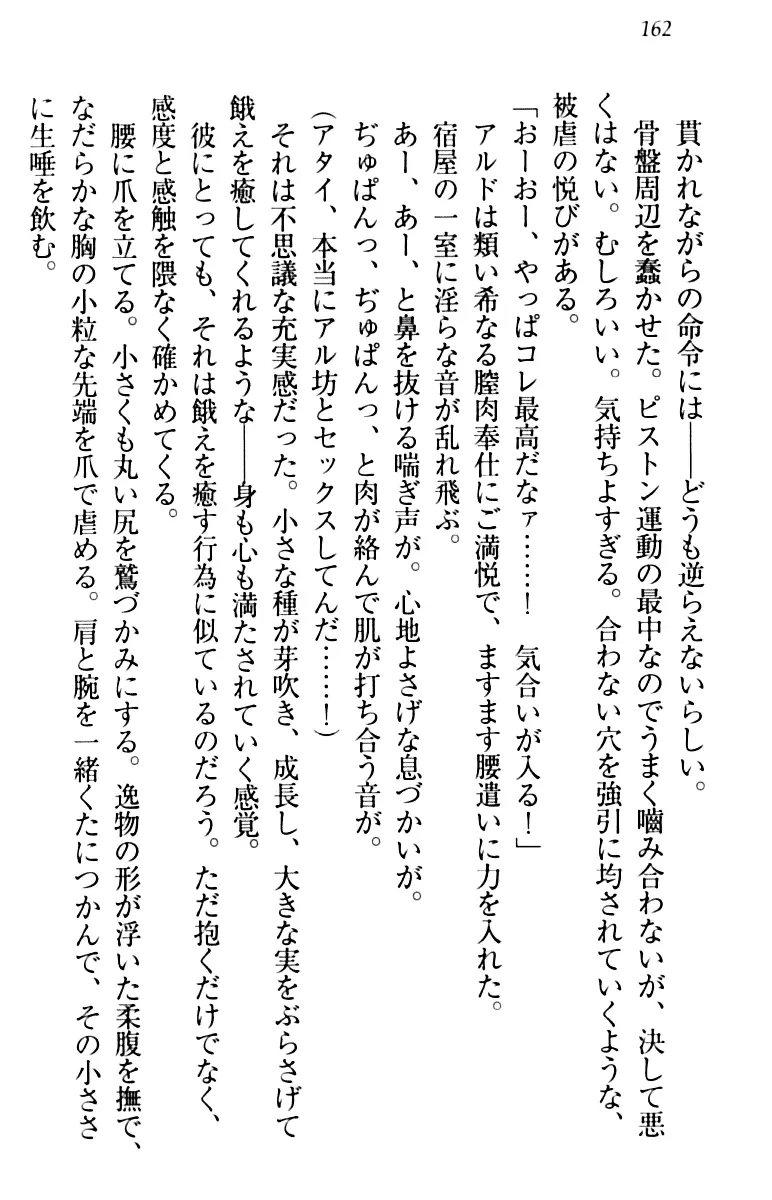 162
貫かれながらの命令には――どうも逆らえないらしい。
骨盤周辺を蠢かせた。ピストン運動の最中なのでうまく嚙み合わないが、決して悪
くはない。むしろいい。気持ちよすぎる。合わない穴を強引に均されていくような、
被虐の悦びがある。
「おーおー、やっぱコレ最高だなァ……！　気合いが入る！」
アルドは類い希なる膣肉奉仕にご満悦で、ますます腰遣いに力を入れた。
宿屋の一室に淫らな音が乱れ飛ぶ。
あー、あー、と鼻を抜ける喘ぎ声が。心地よさげな息づかいが。
ぢゅぱんっ、ぢゅぱんっ、と肉が絡んで肌が打ち合う音が。
（アタイ、本当にアル坊とセックスしてんだ……！）
それは不思議な充実感だった。小さな種が芽吹き、成長し、大きな実をぶらさげて
餓えを癒してくれるような――身も心も満たされていく感覚。
彼にとっても、それは餓えを癒す行為に似ているのだろう。ただ抱くだけでなく、
感度と感触を隈なく確かめてくる。
腰に爪を立てる。小さくも丸い尻を鷲づかみにする。逸物の形が浮いた柔腹を撫で、
なだらかな胸の小粒な先端を爪で虐める。肩と腕を一緒くたにつかんで、その小ささ
に生唾を飲む。